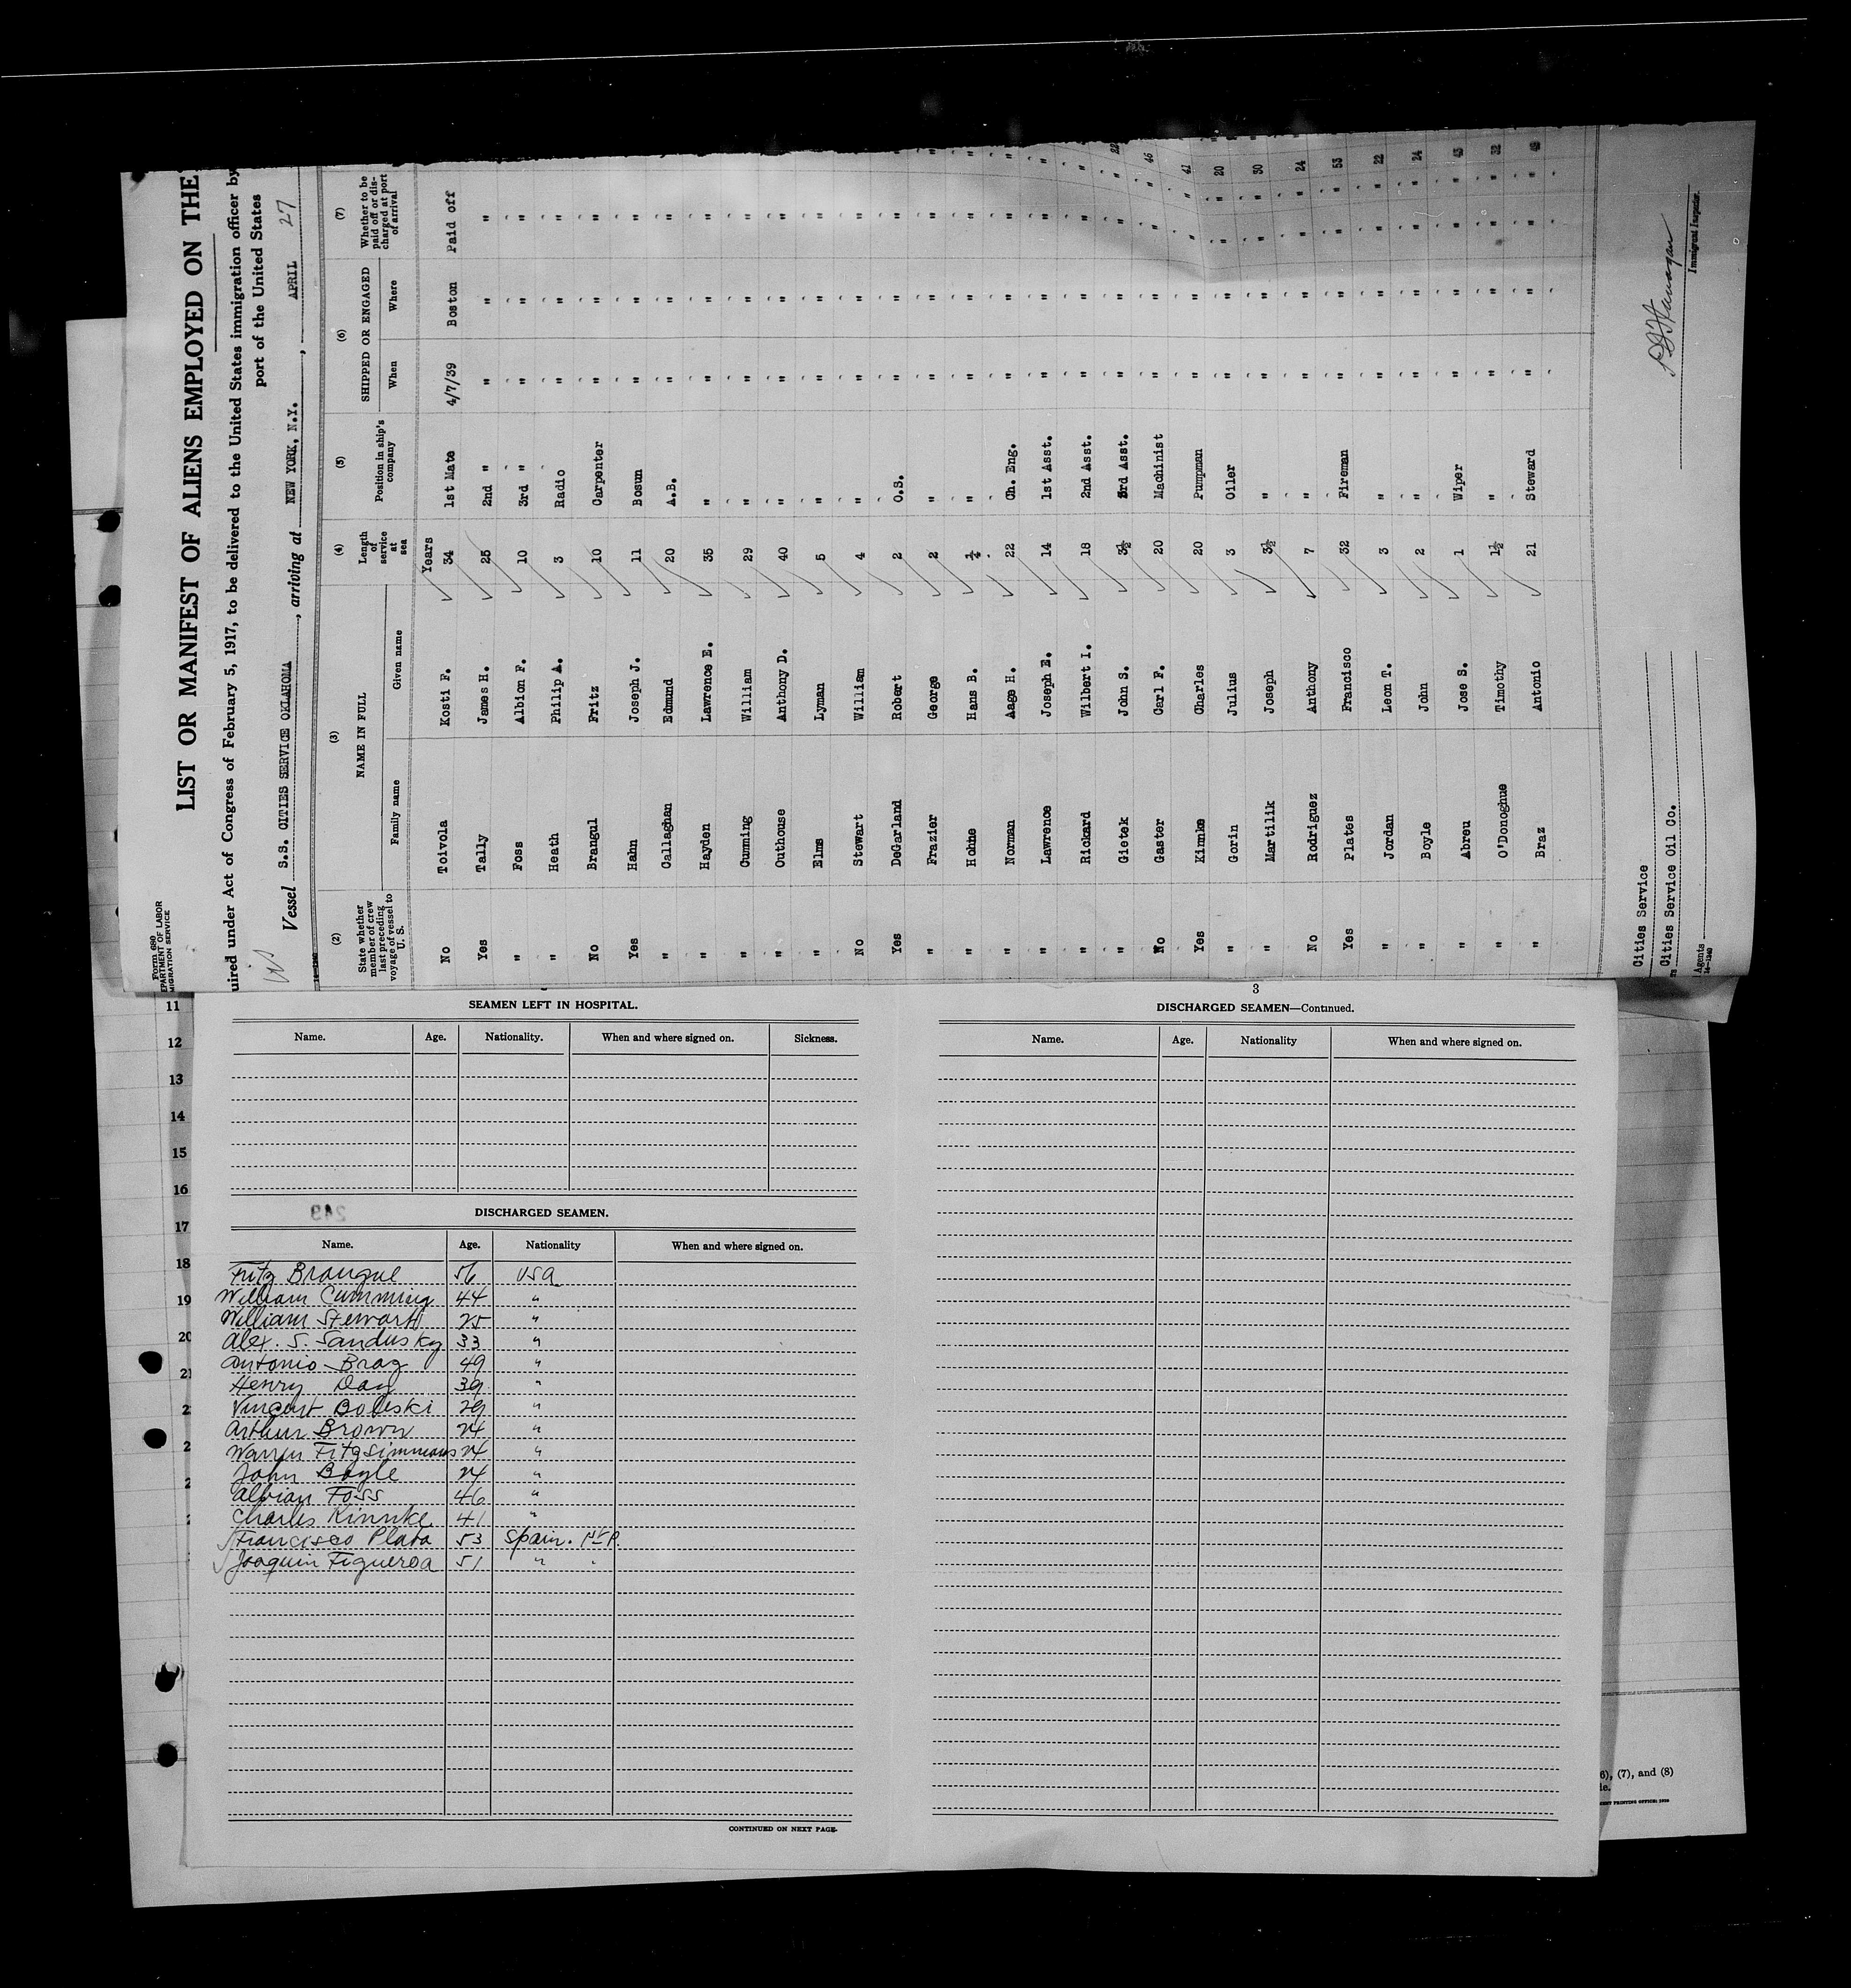 Form 680
MIGRATION SERVICE
LIST OR MANIFEST OF ALIENS EMPLOYED ON THE
uired under Act of Congress of February 5, 1917, to be delivered to the United States immigration officer by
port of the United States
Vessel S.S. CITIES SERVICE OKLAHOMA, arriving at NEW YORK, N.Y., APRIL 27
(2) (3) (4) (5) (6) (7)
State whether member of crew last preceding voyage of vessel to U. S. NAME IN FULL Length of service at sea Position in ship's company SHIPPED OR ENGAGED Whether to be paid off or discharged at port of arrival
Family name Given name When Where
Years
No Toivola Kosti F. 34 1st Mate 4/7/39 Boston Paid off
Yes Tally James H. 25 2nd " " " "
" Foss Albion F. 10 3rd " " " "
" Heath Philip A. 3 Radio " " "
No Brangul Fritz 10 Carpenter " " "
Yes Hahn Joseph J. 11 Bosun " " "
" Callaghan Edmund 20 A.B. " " "
" Hayden Lawrence E. 35 " " " "
" Cumming William 29 " " " "
" Outhouse Anthony D. 40 " " " "
" Elms Lyman 5 " " " "
No Stewart William 4 " " " "
Yes DeGarland Robert 2 O.S. " " "
" Frazier George 2 " " " " "
" Hohne Hans B. ¼ " " " " "
" Norman Aage H. 22 Ch. Eng. " " " "
" Lawrence Joseph E. 14 1st Asst. " " " "
" Rickard Wilbert I. 18 2nd Asst. " " " "
" Gietek John S. 3½ 3rd Asst. " " " " 22
No Gaster Carl F. 20 Machinist " " " " 46
Yes Kimnke Charles 20 Pumpman " " " " 41
" Gorin Julius 3 Oiler " " " " 20
" Martilik Joseph 3½ " " " " " 30
No Rodriguez Anthony 7 " " " " " 24
Yes Plates Francisco 32 Fireman " " " " 53
" Jordan Leon T. 3 " " " " " 22
" Boyle John 2 " " " " " 24
" Abreu Jose S. 1 Wiper " " " " 43
" O'Donoghue Timothy 1½ " " " " " 32
" Braz Antonio 21 Steward " " " " 49
Cities Service
Cities Service Oil Co.
Agents
Immigrant Inspector.
11
12
13
14
15
16
17
18
19
20
21
SEAMEN LEFT IN HOSPITAL.
Name. Age. Nationality. When and where signed on. Sickness.
249
DISCHARGED SEAMEN.
Name. Age. Nationality When and where signed on.
Fritz Brangul 56 USA
William Cumming 44 "
William Stewart 25 "
Alex. S. Sandusky 33 "
Antonio Braz 49 "
Henry Day 39 "
Vincent Boleski 29 "
Arthur Brown 24 "
Warren Fitzsimmons 24 "
John Boyle 24 "
Albian Foss 46 "
Charles Kinnke 41 "
Francisco Plata 53 Spain. 1st P.
Joaquin Figueroa 51 " "
CONTINUED ON NEXT PAGE.
3
DISCHARGED SEAMEN—Continued.
Name. Age. Nationality When and where signed on.
6), (7), and (8)